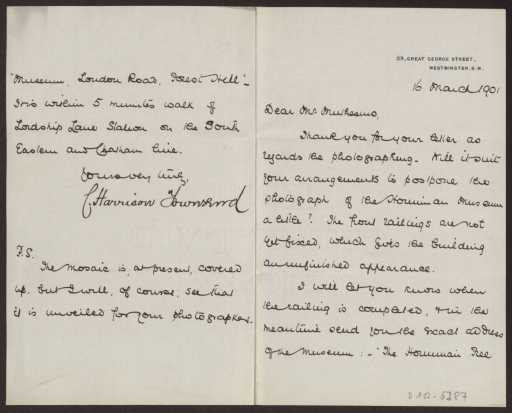 29, GREAT GEORGE STREET,
WESTMINSTER, S.W.
16 March 1901
Dear Mr. Muthesius,
Thank you for your letter as
regards the photographing. Will it suit
your arrangements to postpone the
photograph of the Horniman Museum
a little? The front railings are not
yet fixed, which gives the building
an unfinished appearance.
I will let you know when
the railing is completed, & in the
meantime send you the exact address
of the Museum:- "The Horniman Free
Museum, London Road, Forest Hill"-
It is within 5 minutes walk of
Lordship Lane Station on the South
Eastern and Chatham line.
Yours very truly,
C. Harrison Townsend
P.S.
The mosaic is, at present, covered
up, but I will, of course, see that
it is unveiled for your photographer.